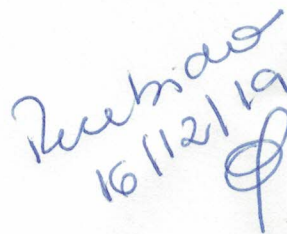 Recebido
16/12/19